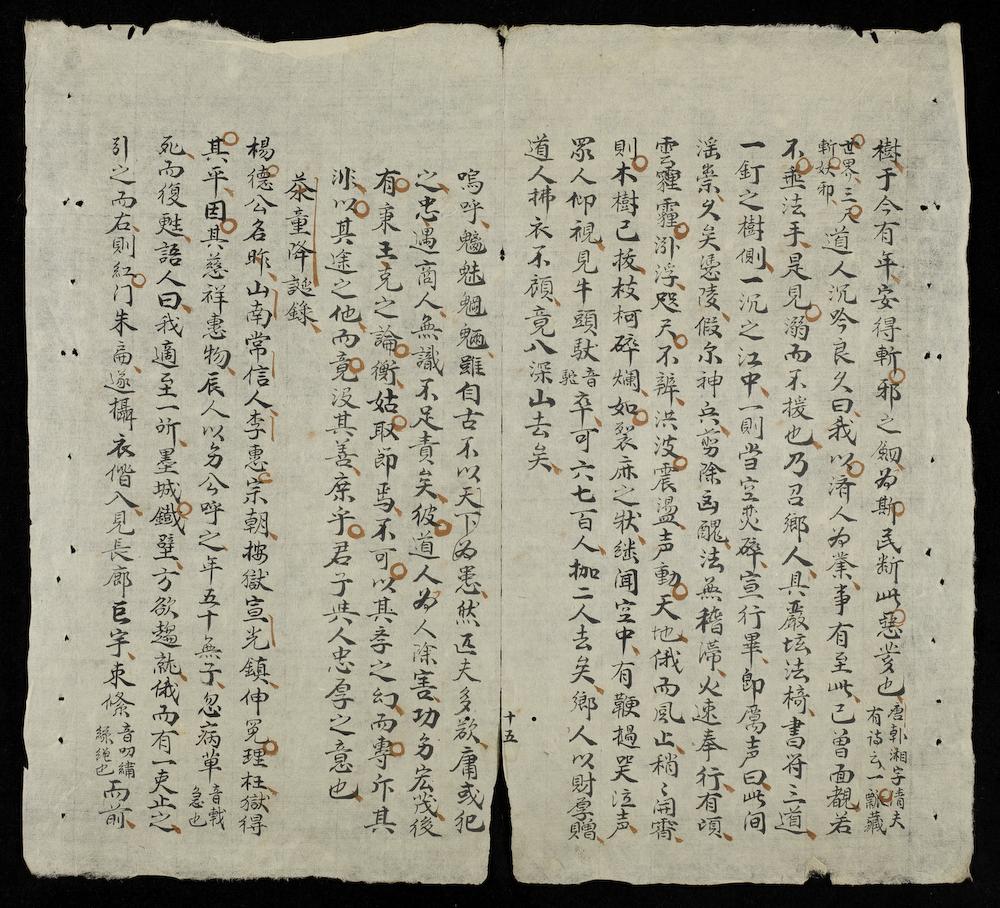 樹于今有年安得斬邪之劒為斯民断此惡業也唐韓湘字清夫有詩云一瓢藏
世界三尺斬妖邪道人沉吟良久曰我以濟人為業事有至此已曾面覩若
不垂法手是見溺而不援也乃召鄉人具嚴坛法椅書符三道
一釘之樹側一沉之江中一則当空焚碎宣行畢即厲声曰此間
滛祟久矣憑陵假尔神兵剪除凶醜法無稽滯火速奉行有頃
雲霾霾引浮咫尺不辨洪波震盪声動天地俄而風止稍〻開霽
則木樹已拔枝柯碎爛如裂麻之状継闻空中有鞭撾哭泣声
眾人仰視見牛頭馱音駝卒可六七百人枷二人去矣鄉人以財厚贈
道人拂衣不顧竟入深山去矣
十五
嗚呼魑魅魍魎雖自古不以天下為患然匹夫多欲庸或犯
之忠遇商人無識不足責矣彼道人為人除害功勞宏茂後
有秉王克之論衡姑取節焉不可以其孝之幻而專斥其
非以其途之他而竟没其善庶乎君子共人忠厚之意也
茶童降誕錄
楊德公名昨山南常信人李惠宗朝按獄宣光鎮伸冤理枉獄得
其平因其慈祥惠物辰人以勞公呼之年五十無子忽病革音戟急也
死而復甦語人曰我適至一所墨城鐵壁方欲趨就俄而有一吏止之
引之而右則紅门朱扁遂攝衣偕入見長廊巨宇束絛音叨繡絲繩也而前